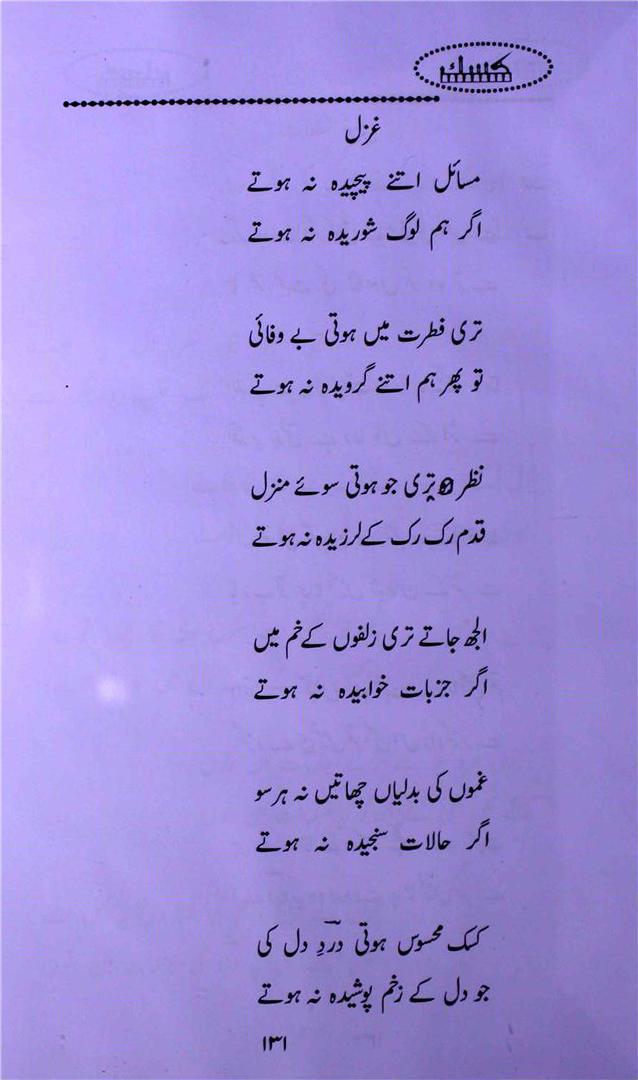 کسک
غزل
مسائل اتنے پیچیدہ نہ ہوتے
اگر ہم لوگ شوریدہ نہ ہوتے
تری فطرت میں ہوتی بے وفائی
تو پھر ہم اتنے گرویدہ نہ ہوتے
نظر تری جو ہوتی سوئے منزل
قدم رک رک کے لرزیدہ نہ ہوتے
الجھ جاتے تری زلفوں کے خم میں
اگر جزبات خوابیدہ نہ ہوتے
غموں کی بدلیاں چھاتیں نہ ہر سو
اگر حالات سنجیدہ نہ ہوتے
کسک محسوس ہوتی دردِ دل کی
جو دل کے زخم پوشیدہ نہ ہوتے
۱۳۱